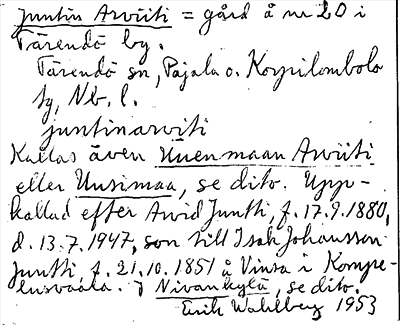 Juntin Arviiti = gård å nr 20 i
Tärendö by.
Tärendö sn, Pajala o. Korpilombolo
tg, Nb. l.
juntinarviti
Kallas även Uuenmaan Arviiti
eller Uusimaa, se dito. Upp-
kallad efter Arvid Juntti, f. 17.9.1880,
d. 13.7.1947, son till Isak Johansson
Juntti, f. 21.10.1851 å Vinsa i Kompe-
lusvaara. Nivankylä, se dito.
Erik Wahlberg 1953